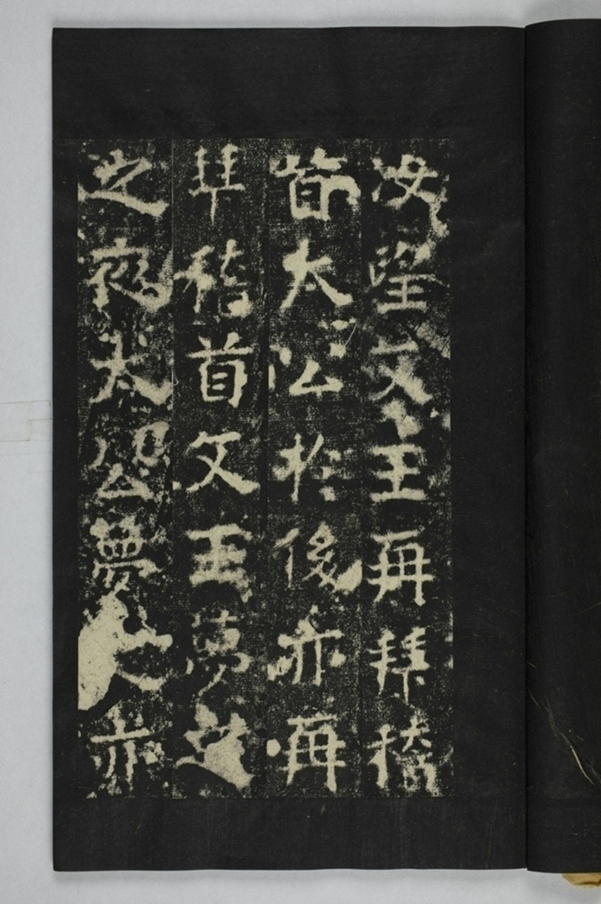 汝望文王再拜稽
首大公於後亦再
拜稽首文王夢之
之夜太公夢之亦